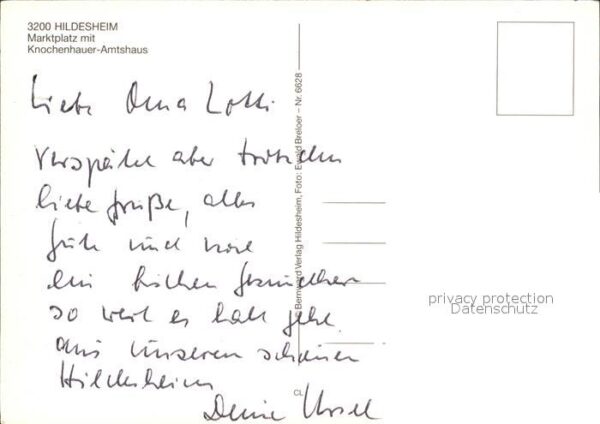 3200 HILDESHEIM
Marktplatz mit
Knochenhauer-Amtshaus
Liebe Oma Lotti
Verspätete aber trotzdem
liebe Grüße, alles
Gute und
ein bißchen Gesundheit
so weit es halt geht.
aus unserem schönen
Hildesheim
Deine Ursel
Bernward Verlag Hildesheim, Foto: Ewald Breloer – Nr. 6628
CL
privacy protection
Datenschutz